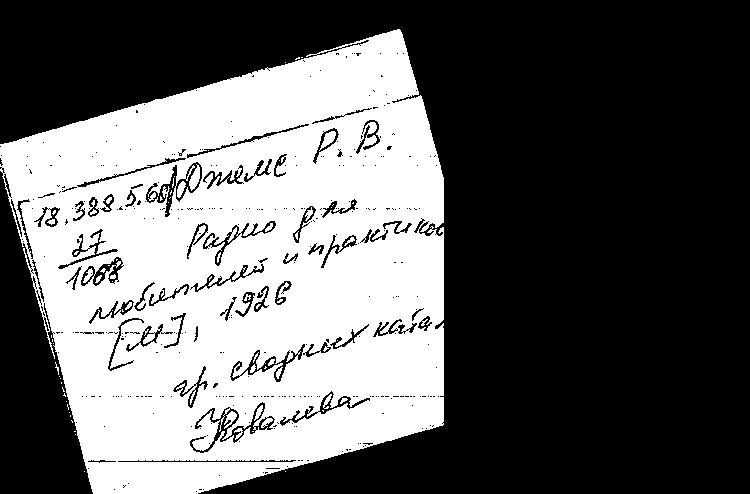 18.388.5.60 Джемс Р. В.
27
1068
Радио для
любителей и практиков
[М], 1926
гр. сводных катал
Ковалева